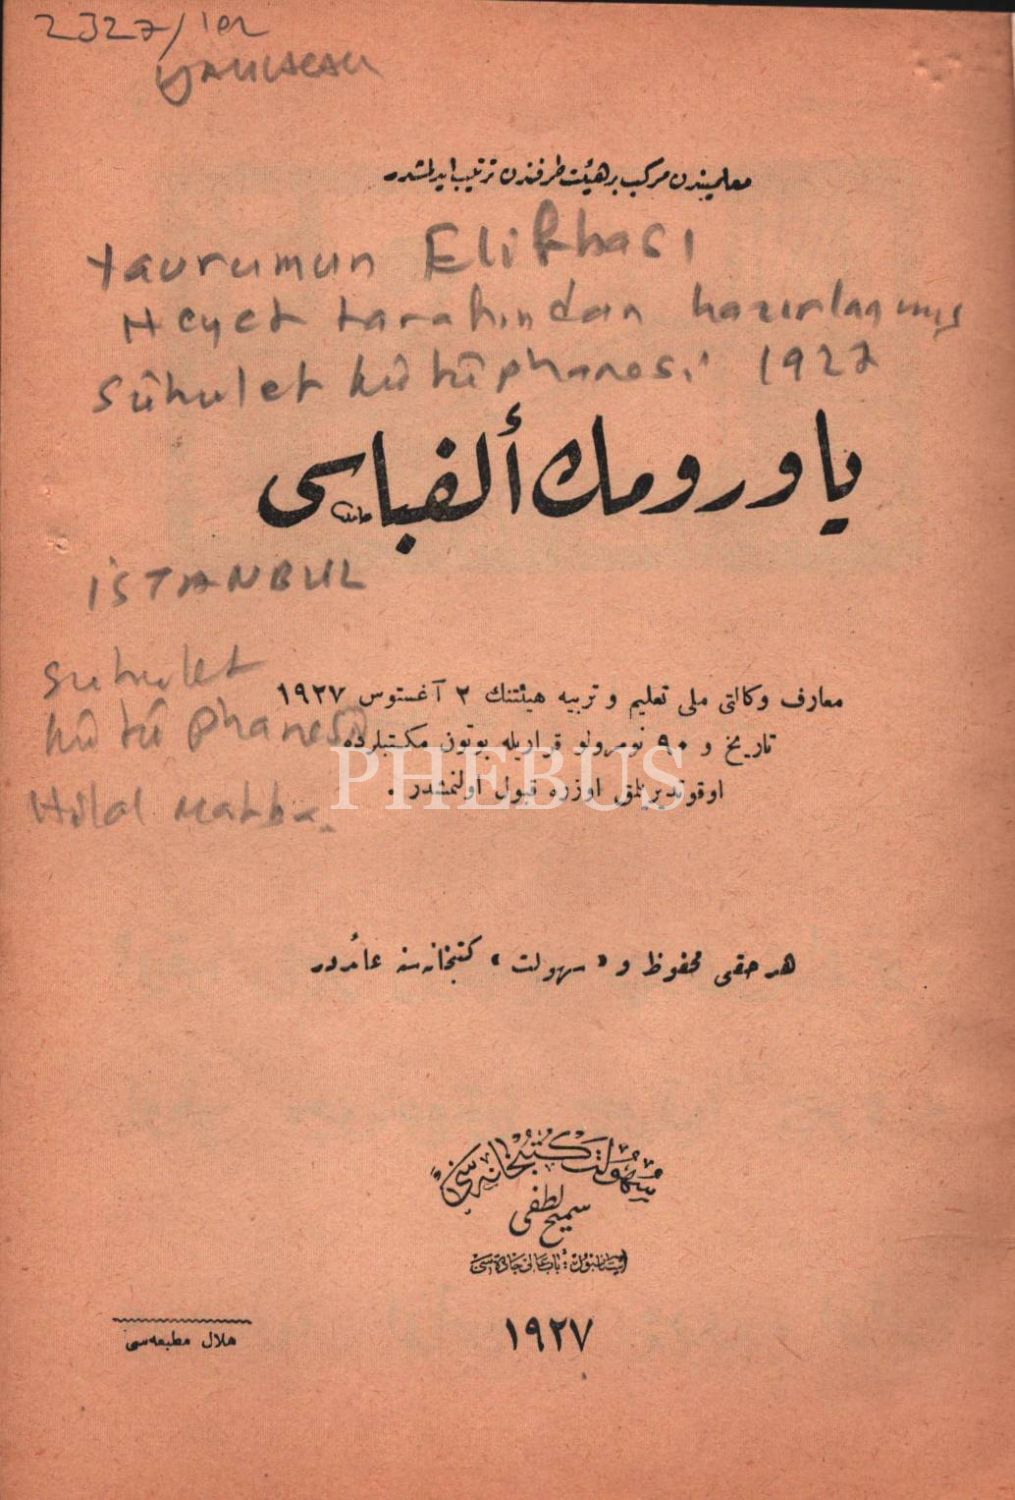 2327/102
معلمیندن مرکب بر هیئت طرفندن ترتیب ایدلمشدر
Yavrumun Elifbası
Heyet tarafından hazırlanmış
Sühulet kütüphanesi 1927
یاورومك ألفباسی
İSTANBUL
Suhulet
kütüphanesi
Hilal Matba.
معارف وکالتی ملی تعلیم و تربیه هیئتنك ٢ آغستوس ١٩٢٧
تاریخ و ٩٠ نومرولو قراریله بوتون مکتبلرده
اوقوتدیریلمق اوزره قبول اولنمشدر .
PHEBUS
هر حقی محفوظ و « سهولت » کتبخانه سنه عائددر
سهولت کتبخانه سی
سمیح لطفی
استانبول : باب عالی جاده سی
١٩٢٧
هلال مطبعه سی